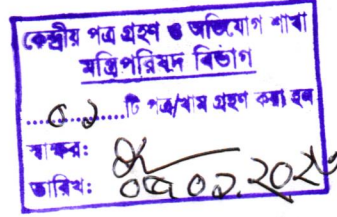 কেন্দ্রীয় পত্র গ্রহণ ও অভিযোগ শাখা
মন্ত্রিপরিষদ বিভাগ
...০১...টি পত্র/খাম গ্রহণ করা হল
স্বাক্ষর:
তারিখ: